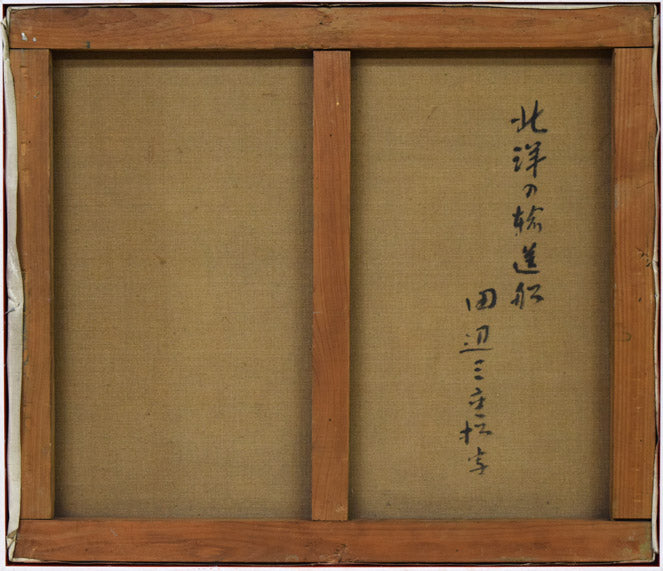 北洋の輸送船
田辺三重松